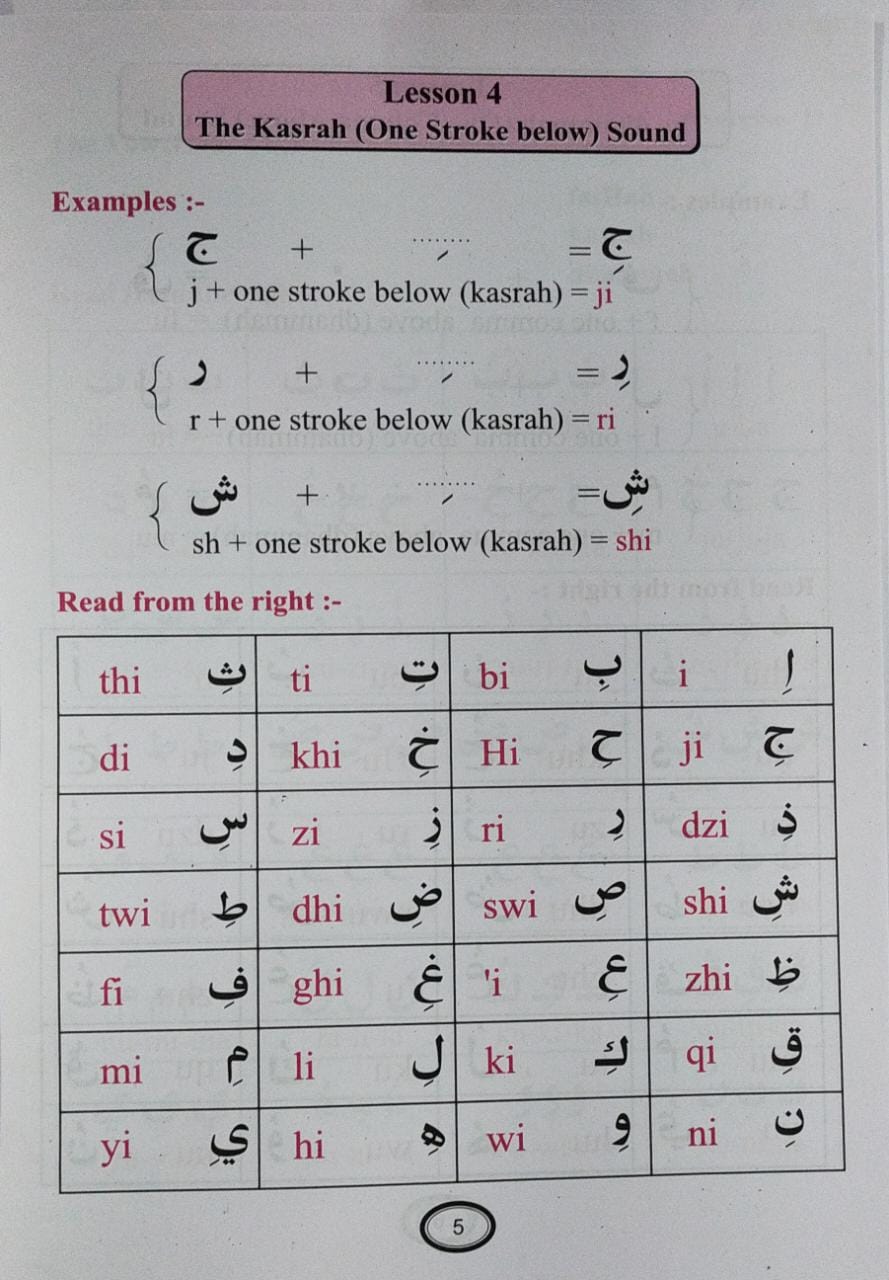 Lesson 4
The Kasrah (One Stroke below) Sound
Examples :-
ج + ........ِ = جِ
j + one stroke below (kasrah) = ji
ر + ........ِ = رِ
r + one stroke below (kasrah) = ri
ش + ........ِ = شِ
sh + one stroke below (kasrah) = shi
Read from the right :-
اِ i بِ bi تِ ti ثِ thi
جِ ji حِ Hi خِ khi دِ di
ذِ dzi رِ ri زِ zi سِ si
شِ shi صِ swi ضِ dhi طِ twi
ظِ zhi عِ 'i غِ ghi فِ fi
قِ qi كِ ki لِ li مِ mi
نِ ni وِ wi هِ hi يِ yi
5